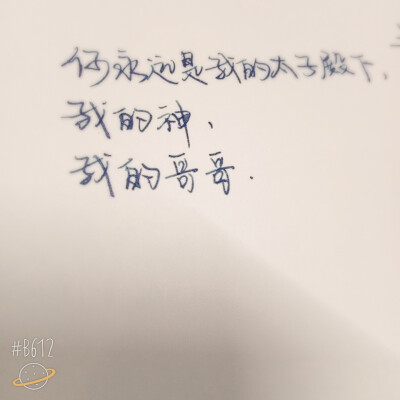 你永远是我的太子殿下,
我的神、
我的哥哥.
#B612